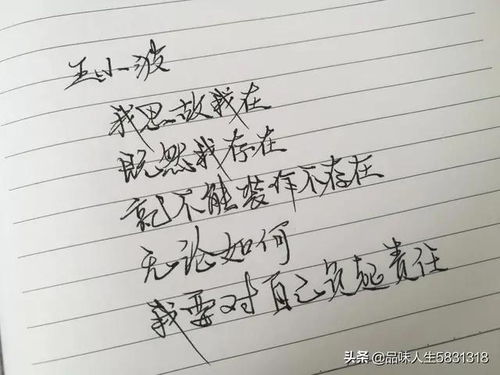 王小波
我思故我在
既然我存在
就不能装作不存在
无论如何
我要对自己负起责任
头条 @品味人生5831318